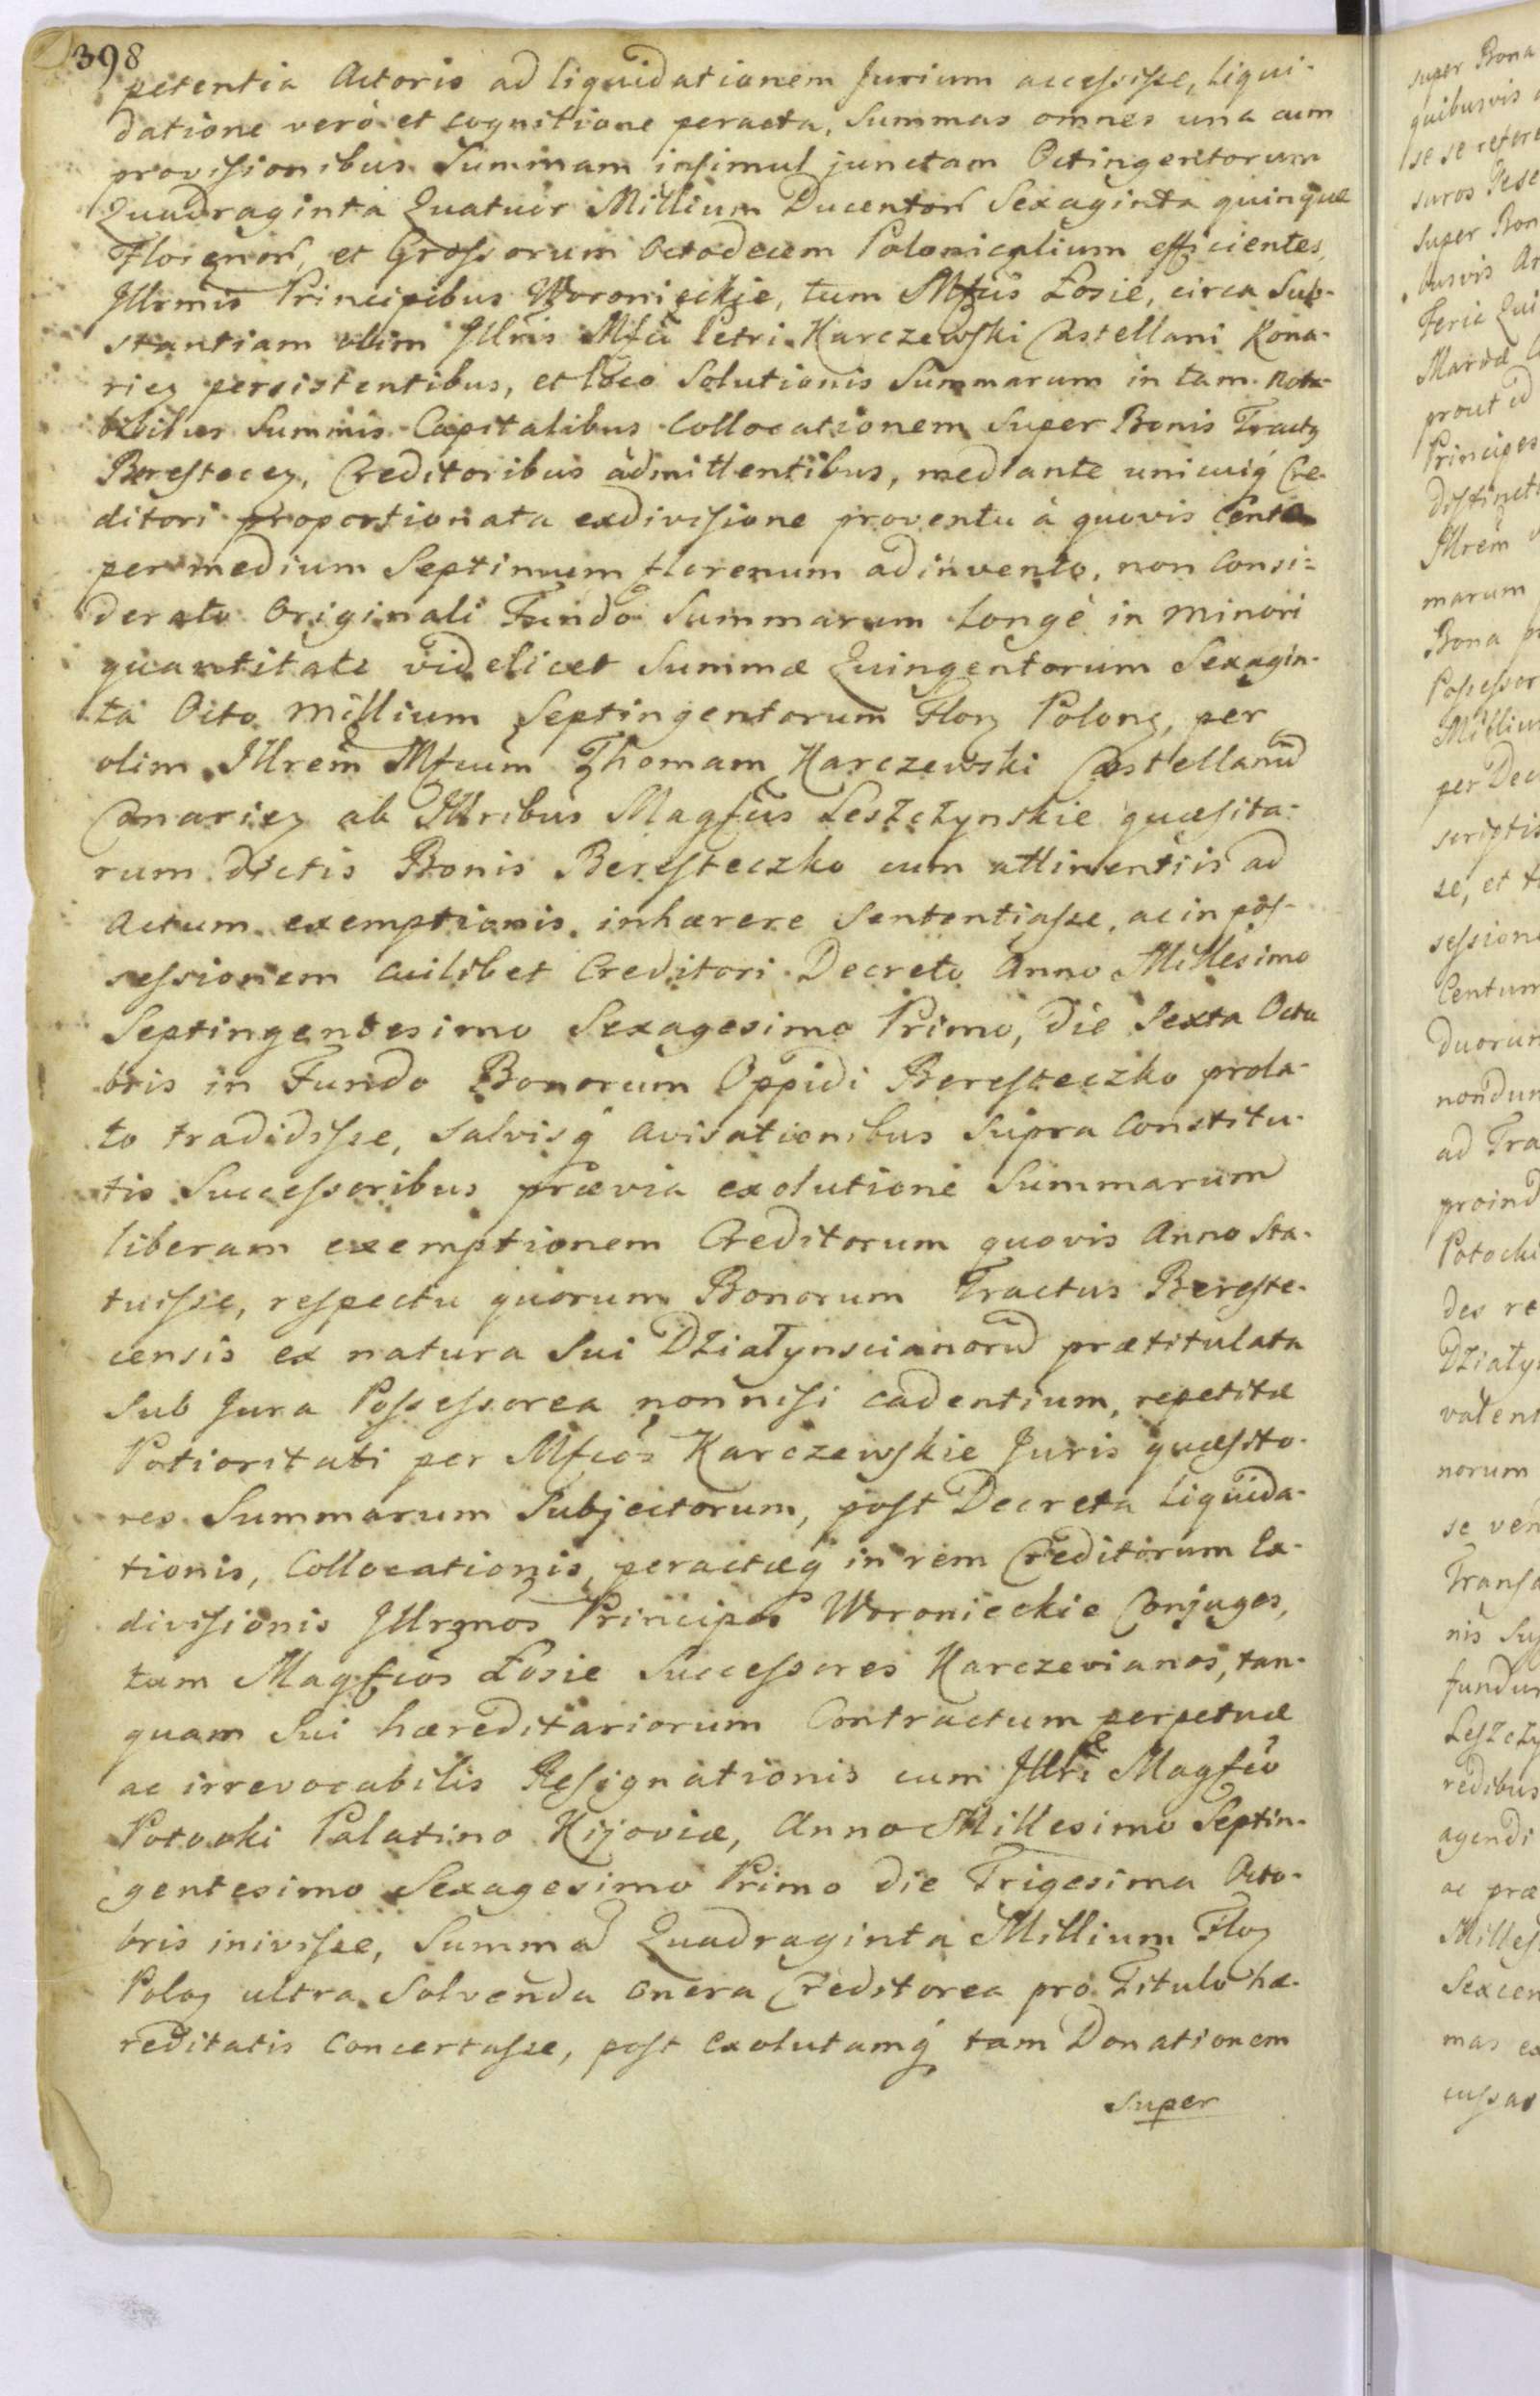 398
petentia Actoris ad liquidationem Jurium accessisse, liqui-
datione verò et cognitione peracta, Summas omnes una cum
provisionibus Summam insimul junctam Octingentorum
Quadraginta Quatuor Millium Ducentoru Sexaginta quinque
Florenoru, et Grossorum Octodecem Polonicalium efficientes,
Illrmis Principibus Woronieckie, tum Mfcis Łosie, circa Sub-
stantiam olim Illris Mfci Petri Karczewski Castellani Kona-
rien persistentibus, et loco Solutionis Summarum in tam nota-
bilibus Summis Capitalibus Collocationem Super Bonis Tractus
Berestecen, Creditoribus admittentibus, mediante unicuiq́ Cre-
ditori proportionata exdivisione proventu à quovis Cento
per medium Septimum florenum adinvento, non Consi-
derato Originali Fundo Summarum longè in minori
quantitate videlicet Summæ Quingentorum Sexagin-
ta Octo Millium Septingentorum Flor Polon, per
olim Illrem Mfcum Thomam Karczewski Castellanum
Conarien ab Illribus Magfcis Leszczynskie quæsita-
rum dictis Bonis Beresteczko cum attinentiis ad
Actum exemptionis inhærere Sententiasse, ac in pos-
sessionem cuilibet Creditori Decreto Anno Millesimo
Septingentesimo Sexagesimo Primo, Die Sexta Octo
bris in Fundo Bonorum Oppidi Beresteczko prola-
to tradidisse, salvisq́ avisationibus Supra Constitu-
tis Successoribus prævia exolutione Summarum
liberam exemptionem Creditorum quovis Anno Sta-
tuisse, respectu quorum Bonorum Tractus Bereste-
censis ex natura Sui Działynscianorum prætitulata
Sub Jura Possessorea nonnisi cadentium, repetitæ
Potioritati per Mfcos Karczewskie Juris quæsito-
res Summarum Subjectorum, post Decreta Liquida-
tionis, Collocationis, peractæq́ in rem Creditorum Ex-
divisionis Illrmos Principes Woronieckie Conjuges,
tum Magfcos Łosie Successores Karczevianos, tan-
quam Sui hæreditariorum Contractum perpetuæ
ac irrevocabilis Resignationis cum Illri Magfco
Potocki Palatino Kijoviæ, Anno Millesimo Septin-
gentesimo Sexagesimo Primo die Trigesima Octo-
bris inivisse, Summam Quadraginta Millium Flor
Polon ultra Solvenda onera Creditorea pro Titulo hæ-
reditatis Concertasse, post exolutamq́ tam Donationem
super